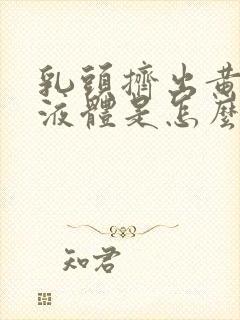 乳頭擠出黃
液體是怎麼
知君